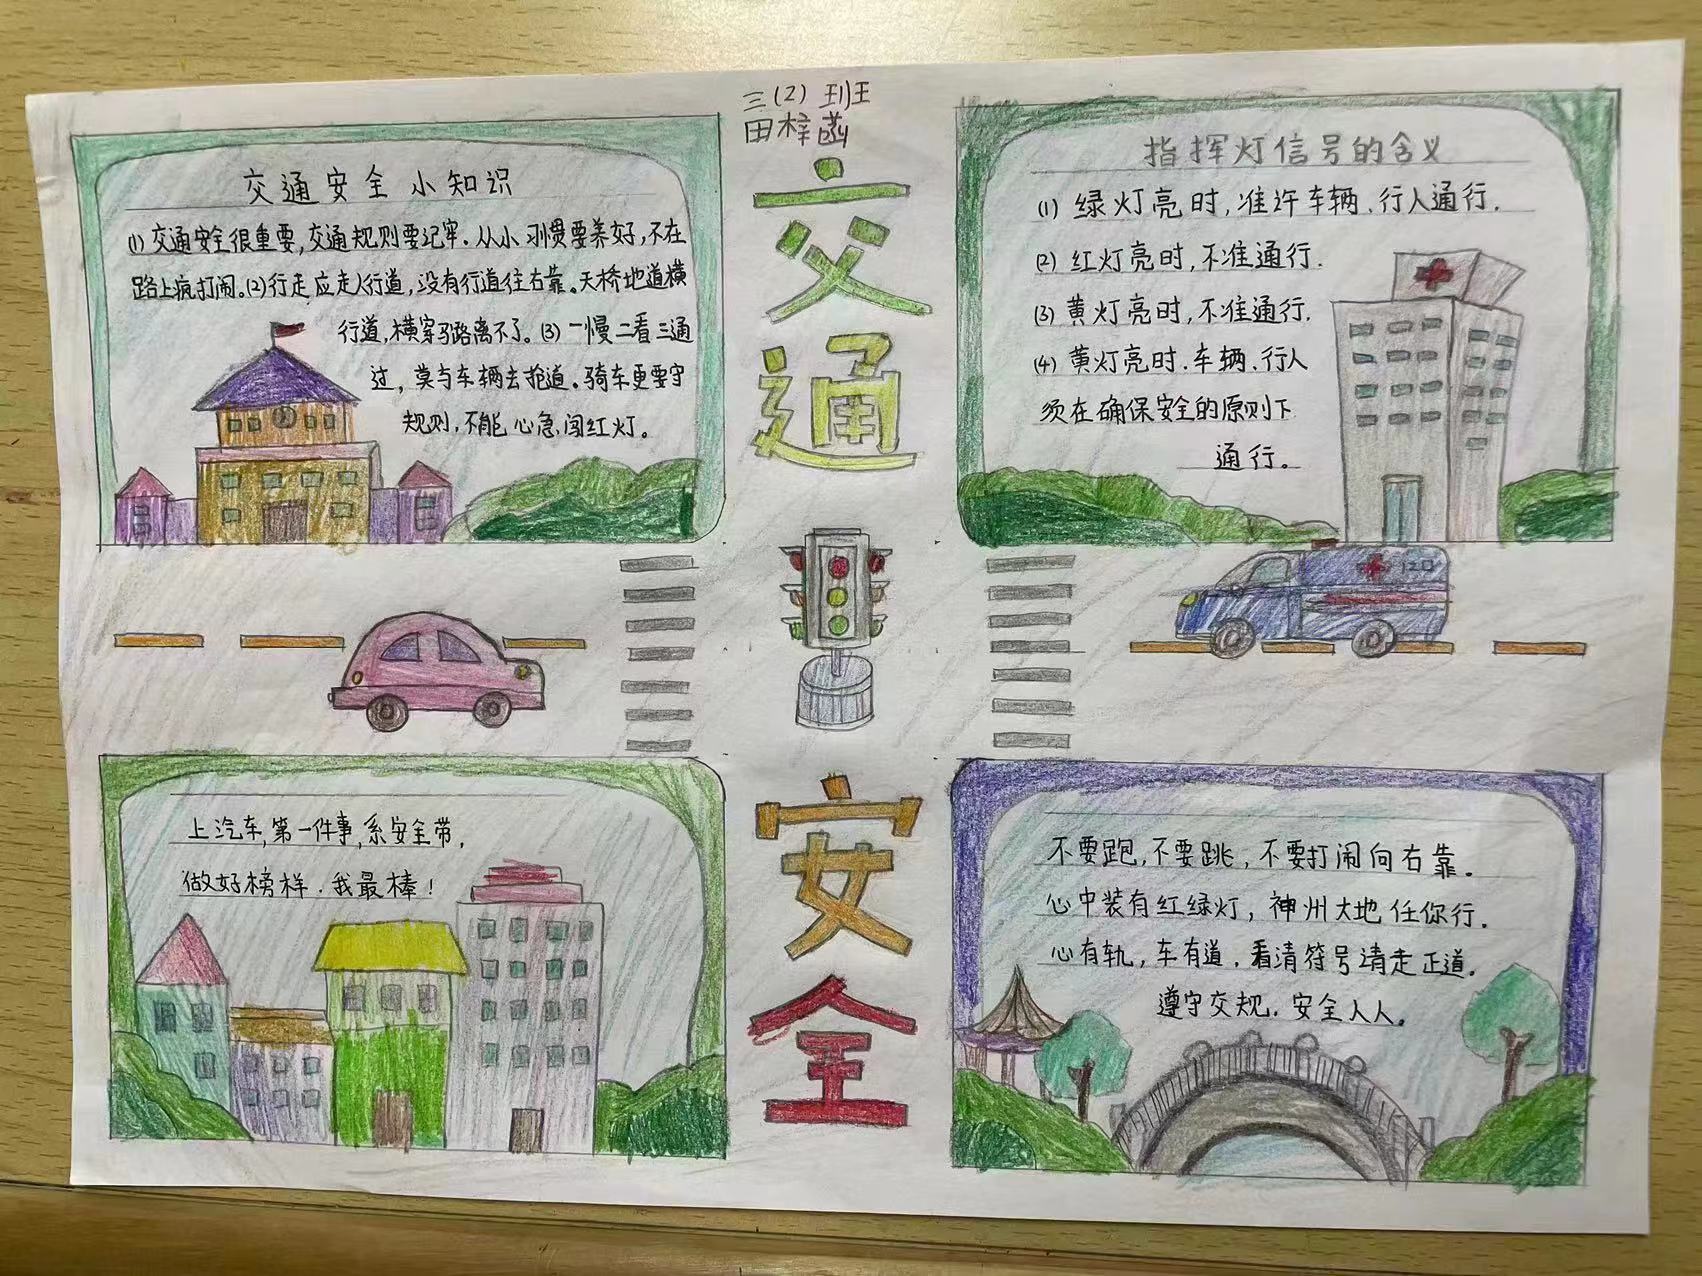 三(2)班
田梓菡
交通安全
交通安全小知识
(1)交通安全很重要,交通规则要记牢.从小习惯要养好,不在
路上疯打闹。(2)行走应走人行道,没有行道往右靠。天桥地道横
行道,横穿马路离不了。(3)一慢二看三通
过,莫与车辆去抢道。骑车更要守
规则,不能心急闯红灯。
指挥灯信号的含义
(1)绿灯亮时,准许车辆、行人通行.
(2)红灯亮时,不准通行.
(3)黄灯亮时,不准通行.
(4)黄灯亮时.车辆、行人
须在确保安全的原则下
通行。
120
上汽车,第一件事,系安全带,
做好榜样.我最棒!
不要跑,不要跳,不要打闹向右靠。
心中装有红绿灯,神州大地任你行.
心有轨,车有道.看清符号请走正道.
遵守交规.安全人人。